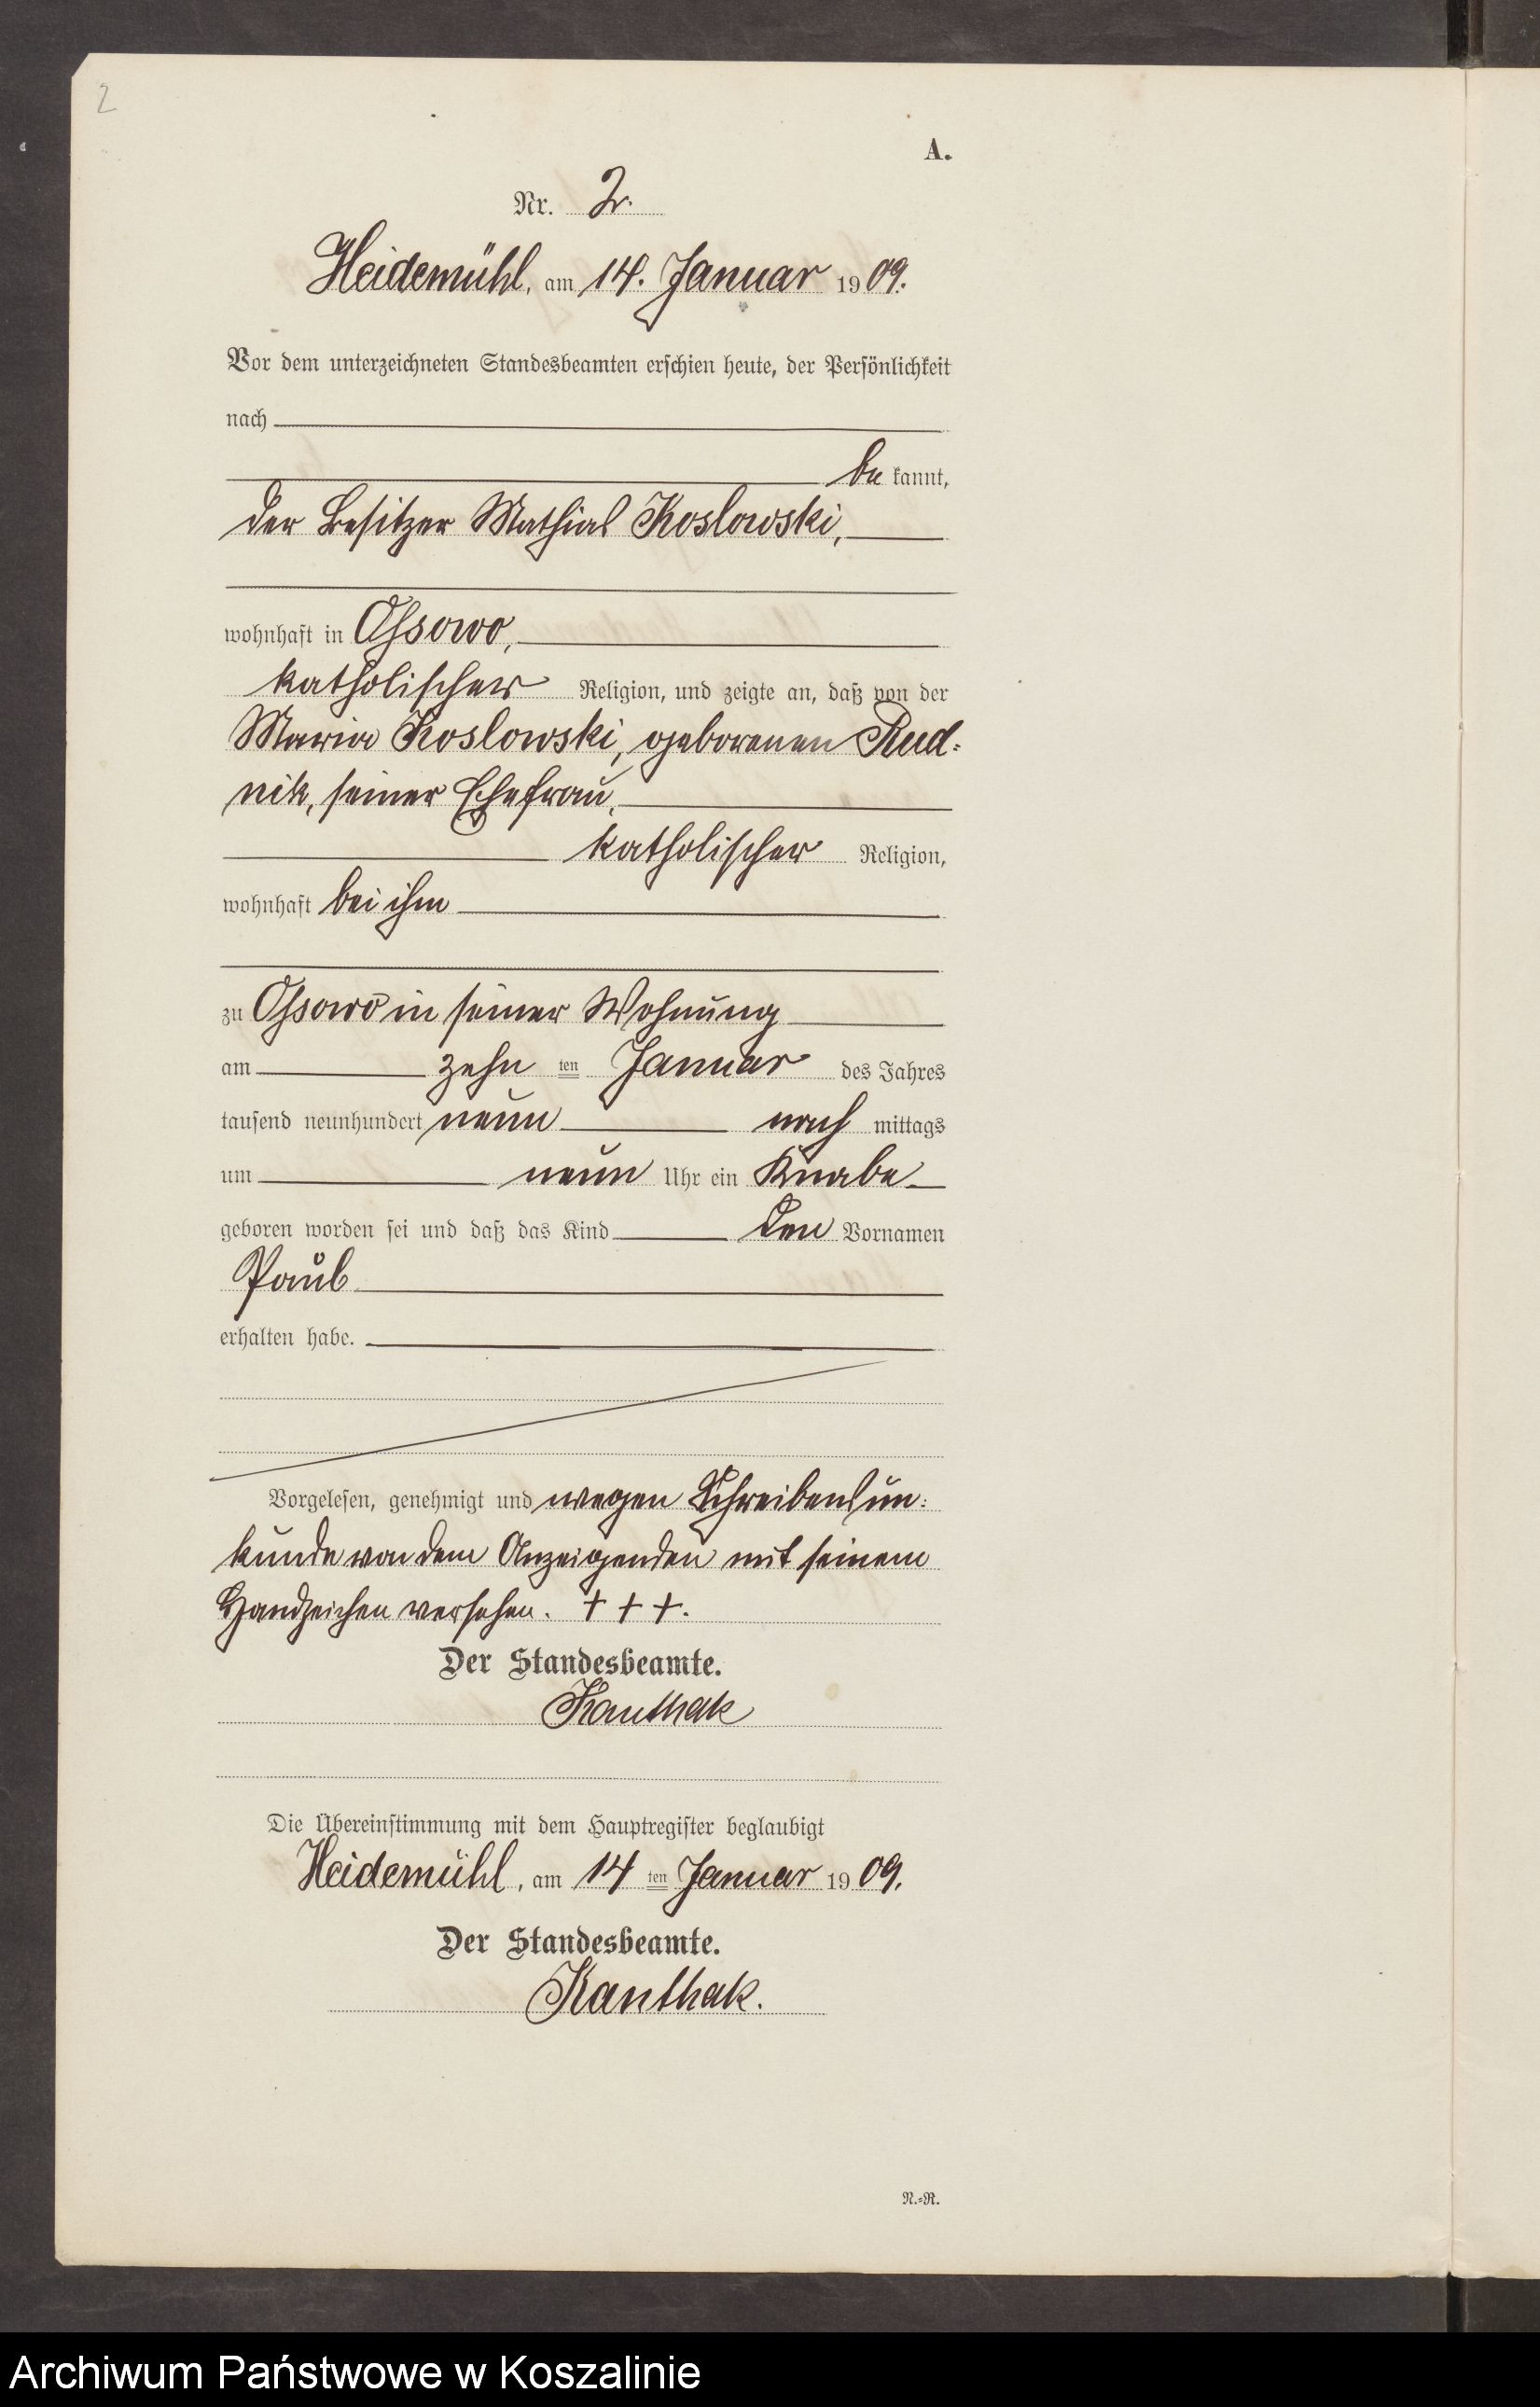 2
A.
Nr. 2.
Heidemühl, am 14. Januar 1909.
Vor dem unterzeichneten Standesbeamten erschien heute, der Persönlichkeit
nach
bekannt,
der Besitzer Mathias Koslowski,
wohnhaft in Ossowo,
katholischer Religion, und zeigte an, daß von der
Maria Koslowski, geborenen Rud-
nik, seiner Ehefrau,
katholischer Religion,
wohnhaft bei ihm
zu Ossowo in seiner Wohnung
am zehn ten Januar des Jahres
tausend neunhundert neun nach mittags
um neun Uhr ein Knabe
geboren worden sei und daß das Kind den Vornamen
Paul
erhalten habe.
Vorgelesen, genehmigt und wegen Schreibensun-
kunde von dem Anzeigenden mit seinem
Handzeichen versehen. + + +.
Der Standesbeamte.
Kanthak
Die Übereinstimmung mit dem Hauptregister beglaubigt
Heidemühl, am 14 ten Januar 1909.
Der Standesbeamte.
Kanthak.
N.-R.
Archiwum Państwowe w Koszalinie